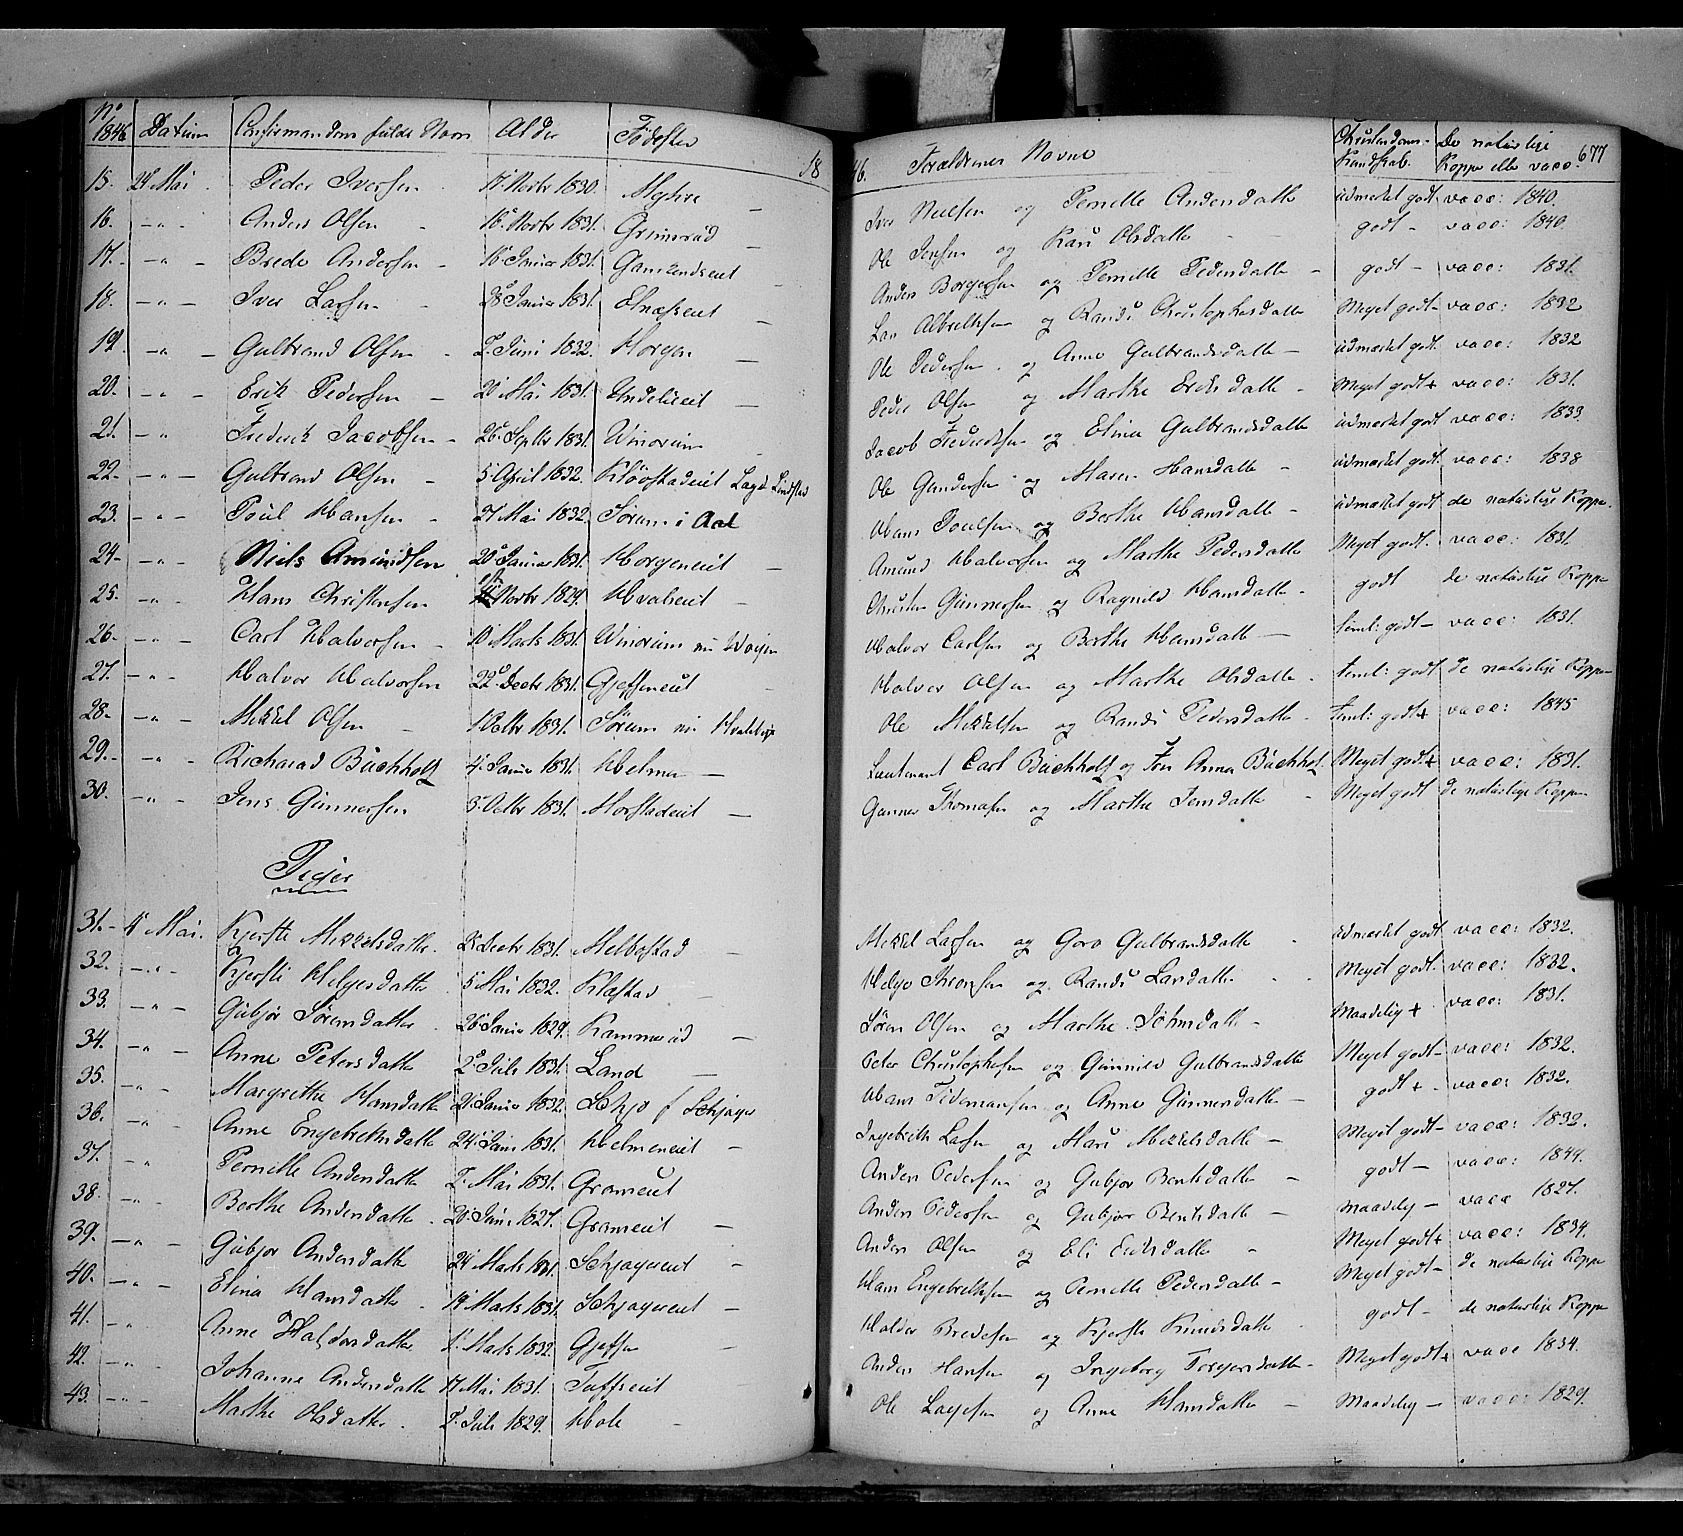 No 1846 Datum Confirmandens fulde Navn Alder Fødested 18
15. 24 Mai Peder Iversen 17 Novbr 1830. Myhre
16. Anders Olsen 16 Novbr 1831. Grimsrud
17. Brede Andersen 16 Januar 1831.
18. Iver Larsen 28 Januar 1831.
19. Gulbrand Olsen 2 Juni 1832. Horgen
20. Erik Pedersen 20 Mai 1831. Undelieiet
21. Frederik Jacobsen 26 Septbr 1831. Winorum
22. Gulbrand Olsen 5 April 1832. Kløvstadeiet
23. Poul Hansen 27 Mai 1832. Sørum i Aal
24. Niels Amundsen 20 Januar 1831. Horgeneiet
25. Hans Christensen Novbr 1829. Hvalseiet
26. Carl Halvorsen 10 Marts 1831. Winorum
27. Halvor Halvorsen 22 Decbr 1831. Gjeffeneiet
28. Mikkel Olsen 1 Octbr 1831. Sørum
29. Richarad Buchholz 4 Januar 1831. Helmen
30. Jens Gunnersen 5 Octbr 1831. Morstadeiet
Piger
31. 4 Mai. Kjersti Mikkelsdatter 25 Decbr 1831. Melbostad
32. Kjersti Helgesdatter 5 Mai 1832. Klæstad
33. Gubjør Sørensdatter 26 Januar 1829. Rammerud
34. Anne Petersdatter 2 Juli 1831. Land
35. Margrethe Hansdatter 21 Januar 1832.
36. Anne Engebrethsdatter 24 Juni 1831. Helmeneiet
37. Pernille Andersdatter 7. Mai 1831. Grameiet
38. Berthe Andersdatter 20 Juni 1827. Grameiet
39. Gubjør Andersdatter 24 Marts 1831. Schjageneiet
40. Elina Hansdatter 19 Marts 1831. Schjageneiet
41. Anne Haldorsdatter 1 Marts 1832. Gjeffen
42. Johanne Andersdatter 17 Mai 1831.
43. Marthe Olsdatter 7. Juli 1829. Hole
46. Forældrenes Navne Christendoms-Kundskab. De naturlige Kopper eller vacc. 677
Iver Nielsen og Pernille Andersdatter udmerket godt vacc: 1840.
Ole Jensen og Kari Olsdatter godt - vacc: 1840.
Anders Borgersen og Pernille Pedersdatter godt - vacc: 1831.
Lars Albretsen og Randi Christophersdatter Meget godt - vacc: 1832
Ole Pedersen og Anne Gulbrandsdatter - udmerket godt vacc: 1832
Peder Olsen og Marthe Eriksdatter Meget godt + vacc: 1831.
Jacob Fredriksen og Elina Gulbrandsdatter udmerket godt vacc: 1833
Ole Gundersen og Maren Hansdatter udmerket godt vacc: 1838
Hans Poulsen og Berthe Hansdatter udmerket godt de naturlige Kopper.
Amund Halvorsen og Marthe Pedersdatter Meget godt - vacc: 1831.
Christen Gunnersen og Ragnild Hansdatter godt de naturlige Kopper
Halvor Carlsen og Berthe Hansdatter - temli: godt - vacc: 1831.
Halvor Olsen og Marthe Olsdatter temli: godt de naturlige Kopper
Ole Mikkelsen og Randi Pedersdatter temli: godt + vacc: 1845
Lieutenant Carl Buchholz og Fru Anna Buchholz Meget godt + vacc: 1831.
Gunner Thomasen og Marthe Jensdatter Meget godt de naturlige Kopper
Mikkel Larsen og Goro Gulbrandsdatter udmerket godt vacc: 1832.
Helge Thronsen og Randi Larsdatter Meget godt vacc: 1832.
Søren Olsen og Marthe Johnsdatter - Maadelig + vacc: 1831.
Peter Christophersen og Gunnild Gulbrandsdatter Meget godt - vacc: 1832.
Hans Tidemansen og Anne Gunnersdatter - godt + vacc: 1832.
Ingebreth Larsen og Mari Mikkelsdatter - Meget godt - vacc: 1832.
Anders Pedersen og Gubjør Berntsdatter - godt - vacc: 1844.
Anders Pedersen og Gubjør Berntsdatter - maadelig - vacc 1827.
Anders Olsen og Eli Eriksdatter Meget godt + vacc: 1834.
Hans Engebrethsen og Pernille Pedersdatter - Meget godt - de naturlige Kopper
Haldor Bredesen og Kjersti Knudsdatter godt - de naturlige Kopper
Anders Hansen og Ingeborg Torgersdatter - Meget godt + vacc 1834.
Ole Lagesen og Anne Hansdatter - Maadelig - vacc: 1829.